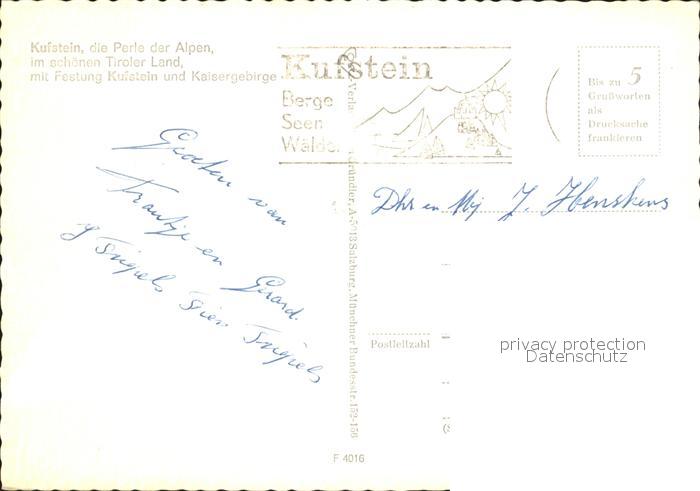 Kufstein, die Perle der Alpen,
im schönen Tiroler Land,
mit Festung Kufstein und Kaisergebirge
Kufstein
Berge
Seen
Wälder
Bis zu 5
Grußworten
als
Drucksache
frankieren
Groeten van
Trautje en Gerard.
Dhr en Mej J. Henskens
Gründler, A-5013 Salzburg, Münchner Bundesstr. 152-156
Postleitzahl
privacy protection
Datenschutz
F 4016